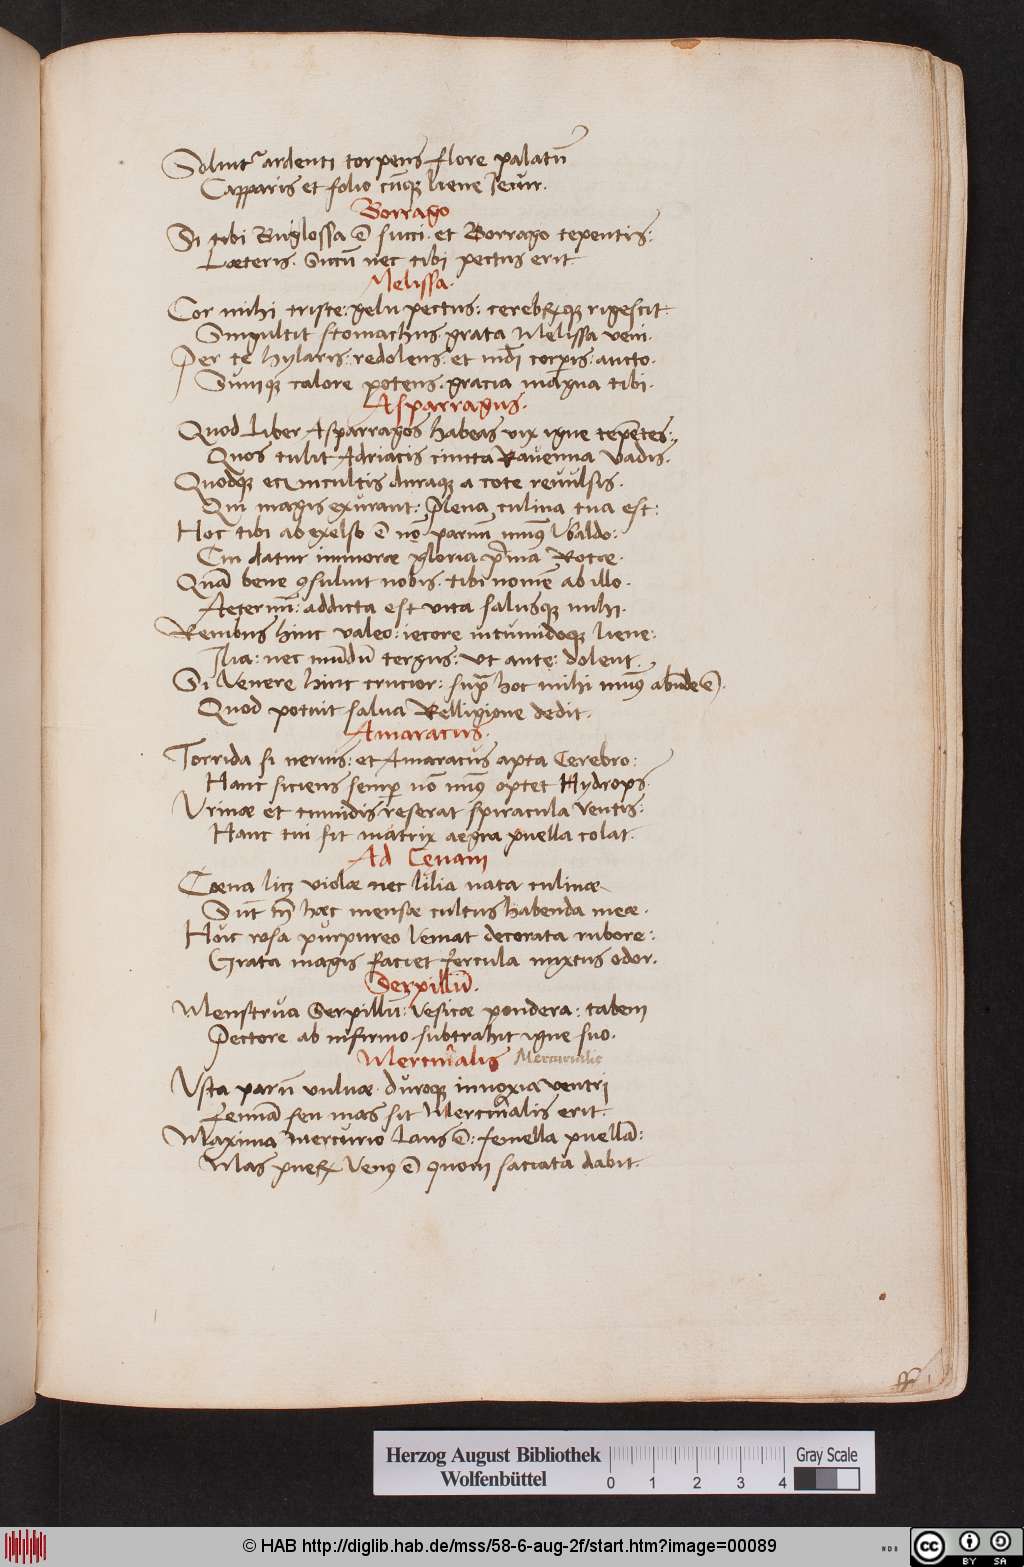 Soluit᷑ ardenti torpens flore palatū
Capparis et folio cūqꝫ liene Iecur.
Borrago
Si tibi Buglossa ē succi. et Borrago tepentis:
Læteris. Siccū nec tibi pectus erit.
Melissa.
Cor mihi triste: gelu pectus: cerebꝝqꝫ rigescit.
Singultit stomachus. grata Melissa veni.
Per te hylaris: redolens: et corꝑis aucto.
Sumqꝫ calore potens. gracia magna tibi.
Asparragus.
Quod Liber Asparragos habeas vix igne tepētes:
Quos tulit Adriacis cincta Ravenna Vadis.
Quodqꝫ incultis duraqꝫ a cote revulsis.
Qui magis exurant: Plena culina tua est:
Hoc tibi ab exelso ē nō parūm munꝰ Vbaldo:
Cui datur gloria p̄ma Rotæ.
Quā bene ꝯsuluit nobis. tibi nomē ab illo.
Aeternū: addicta est vita salusqꝫ mihi.
Renibus hinc valeo: iecore intumidoqꝫ liene:
Ilia: nec tergus: vt ante: dolent.
Si Venere hinc crucior: sup̄ hoc mihi munꝰ abūde ē.
Quod potuit salua Relligione dedit.
Amaracus.
Torrida si nervis: et Amaracus apta Cerebro:
Hanc siciens semꝑ nō munꝰ optet Hydrops.
Vrinæ et tumidis reserat spiracula Ventis:
Hanc cui sit matrix aegra puella colat.
Ad Cenam
Cœna licꝫ violæ nec lilia nata culinæ
Sūt tn̄ hæc mensæ cultus habenda meæ.
Huic rosa purpureo Veniat decorata rubore:
Grata magis faciet fercula mixtus odor.
Serpillū.
Menstrua Serpillū: Vesicæ pondera: tabem
Pectore ab infirmo subtrahit igne suo.
Mercuri̅alis Mercurialis
Vsta parū vulvæ. duroqꝫ innoxia ventri
Femīa seu mas sit Mercuri̅alis erit.
Maxima Mercurio Laus ē: femella puellā:
Mas pueꝝ Venꝰ ē quom saciata dabit.
Herzog August Bibliothek
Wolfenbüttel
0 1 2 3 4
Gray Scale
© HAB http://diglib.hab.de/mss/58-6-aug-2f/start.htm?image=00089
WDB
cc BY SA